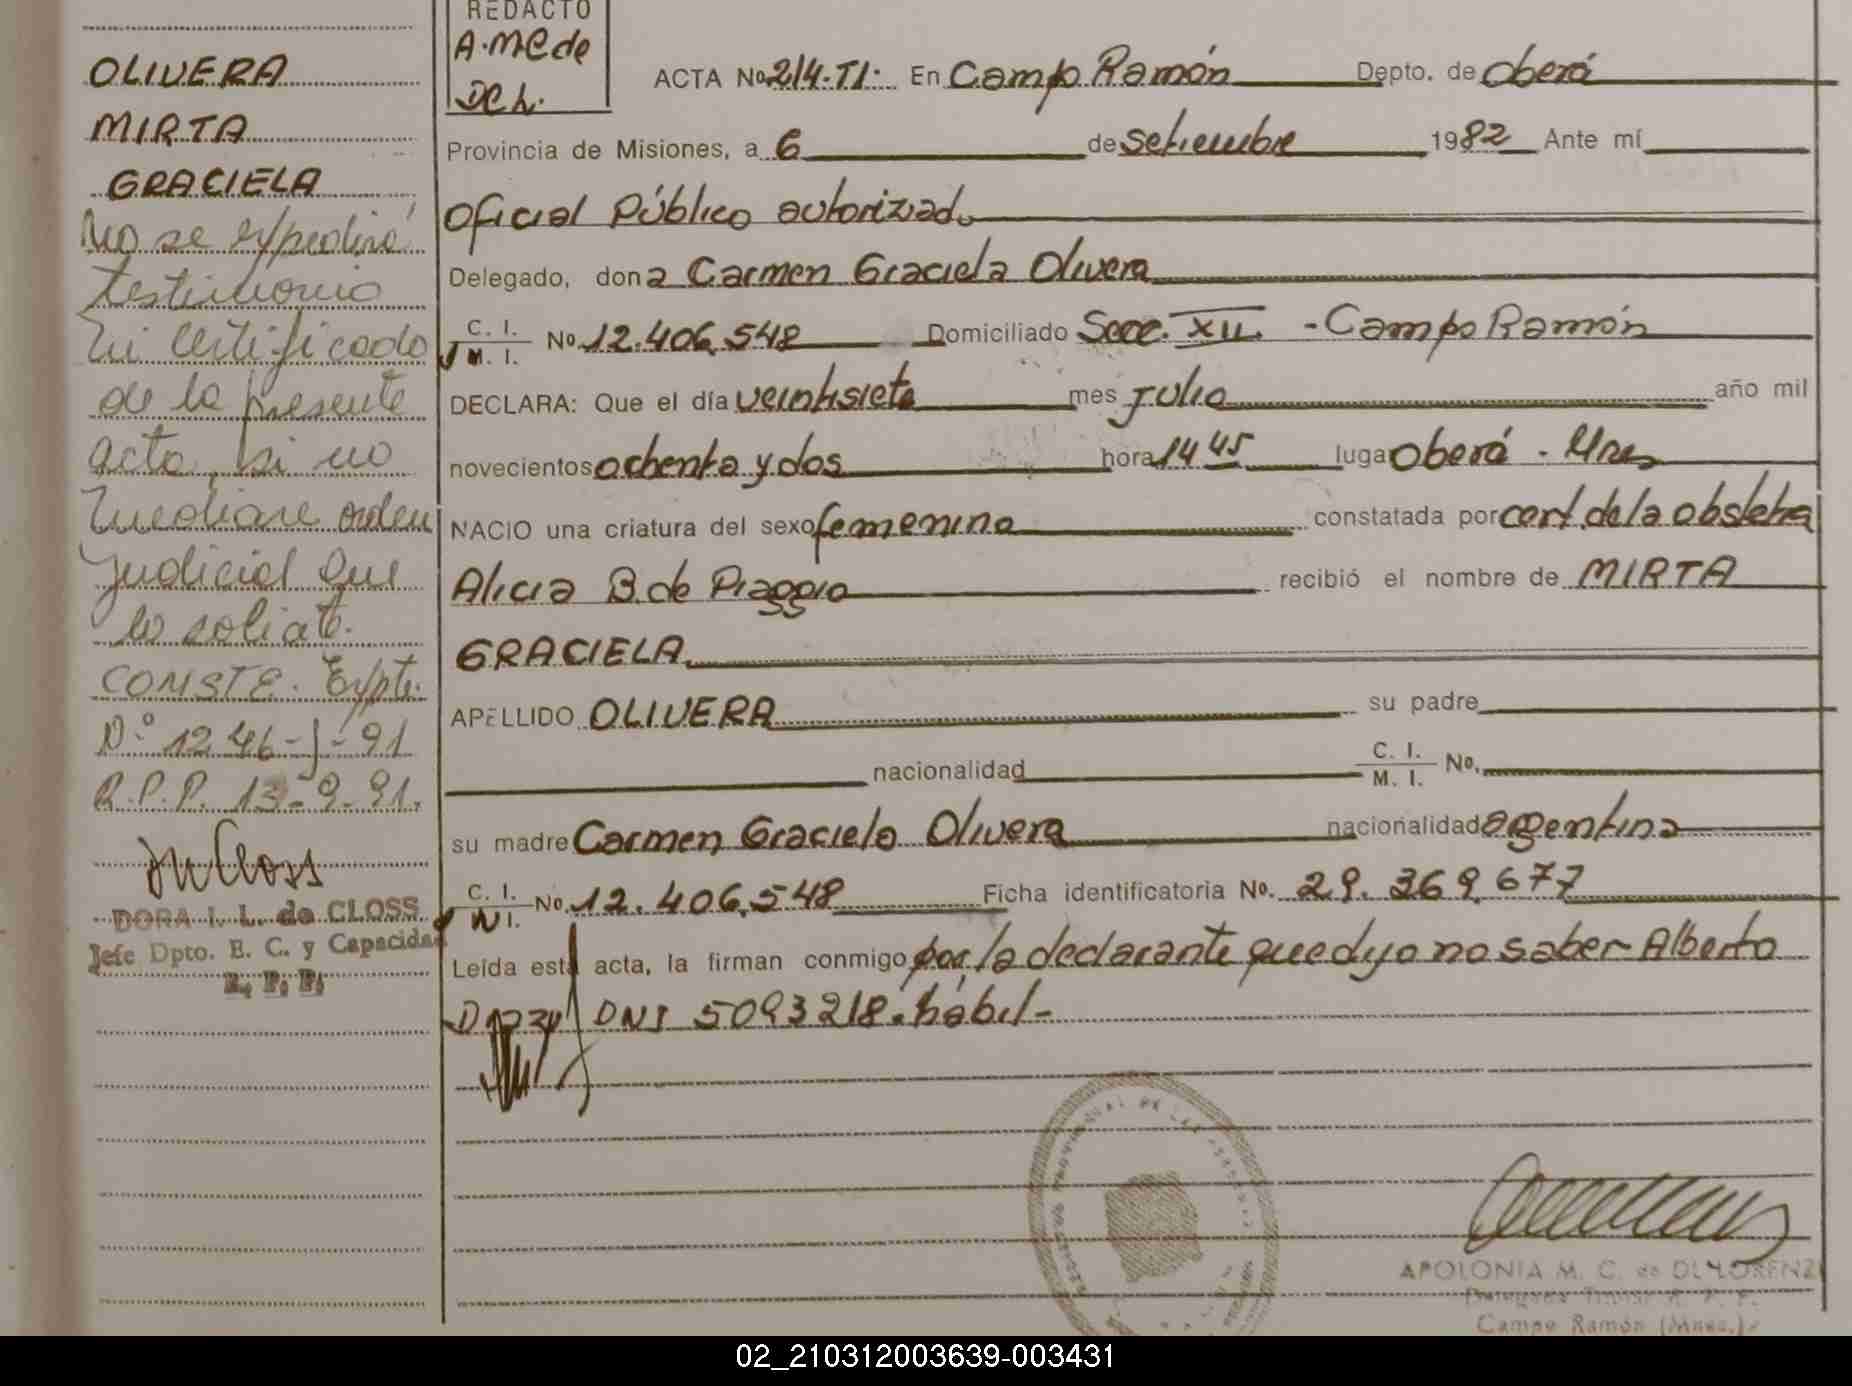 OLIVERA
MIRTA
GRACIELA
No se expedirá
testimonio
ni certificado
de la presente
acta, si no
mediare orden
judicial que
lo solicite.
CONSTE. Expte.
Nº 1246-J-91
R.P.P. 13-9-91.
DORA I. L. de CLOSS
Jefe Dpto. E. C. y Capacidad
R. P. P.
REDACTO
A.MC de
DC L.
ACTA No. 214-TI. En Campo Ramón Depto. de Oberá
Provincia de Misiones, a 6 de setiembre 1982 Ante mí
Oficial Público autorizado
Delegado, dona Carmen Graciela Olivera
C. I.
M. I. No. 12.406.548 Domiciliado Secc. XII. - Campo Ramón
DECLARA: Que el día veintisiete mes julio año mil
novecientos ochenta y dos hora 14 45 lugar Oberá - Mnes
NACIO una criatura del sexo femenino constatada por cert. de la obstetra
Alicia B. de Piaggio recibió el nombre de MIRTA
GRACIELA
APELLIDO OLIVERA su padre
nacionalidad C. I.
M. I. No.
su madre Carmen Graciela Olivera nacionalidad argentina
C. I.
M. I. No. 12.406.548 Ficha identificatoria No. 29.369.677
Leída esta acta, la firman conmigo por la declarante que dijo no saber Alberto
DNI 5093218. hábil-
APOLONIA M. C. de DI LORENZI
Delegada Titular R. P. P.
Campo Ramón (Mnes.)
02_210312003639-003431